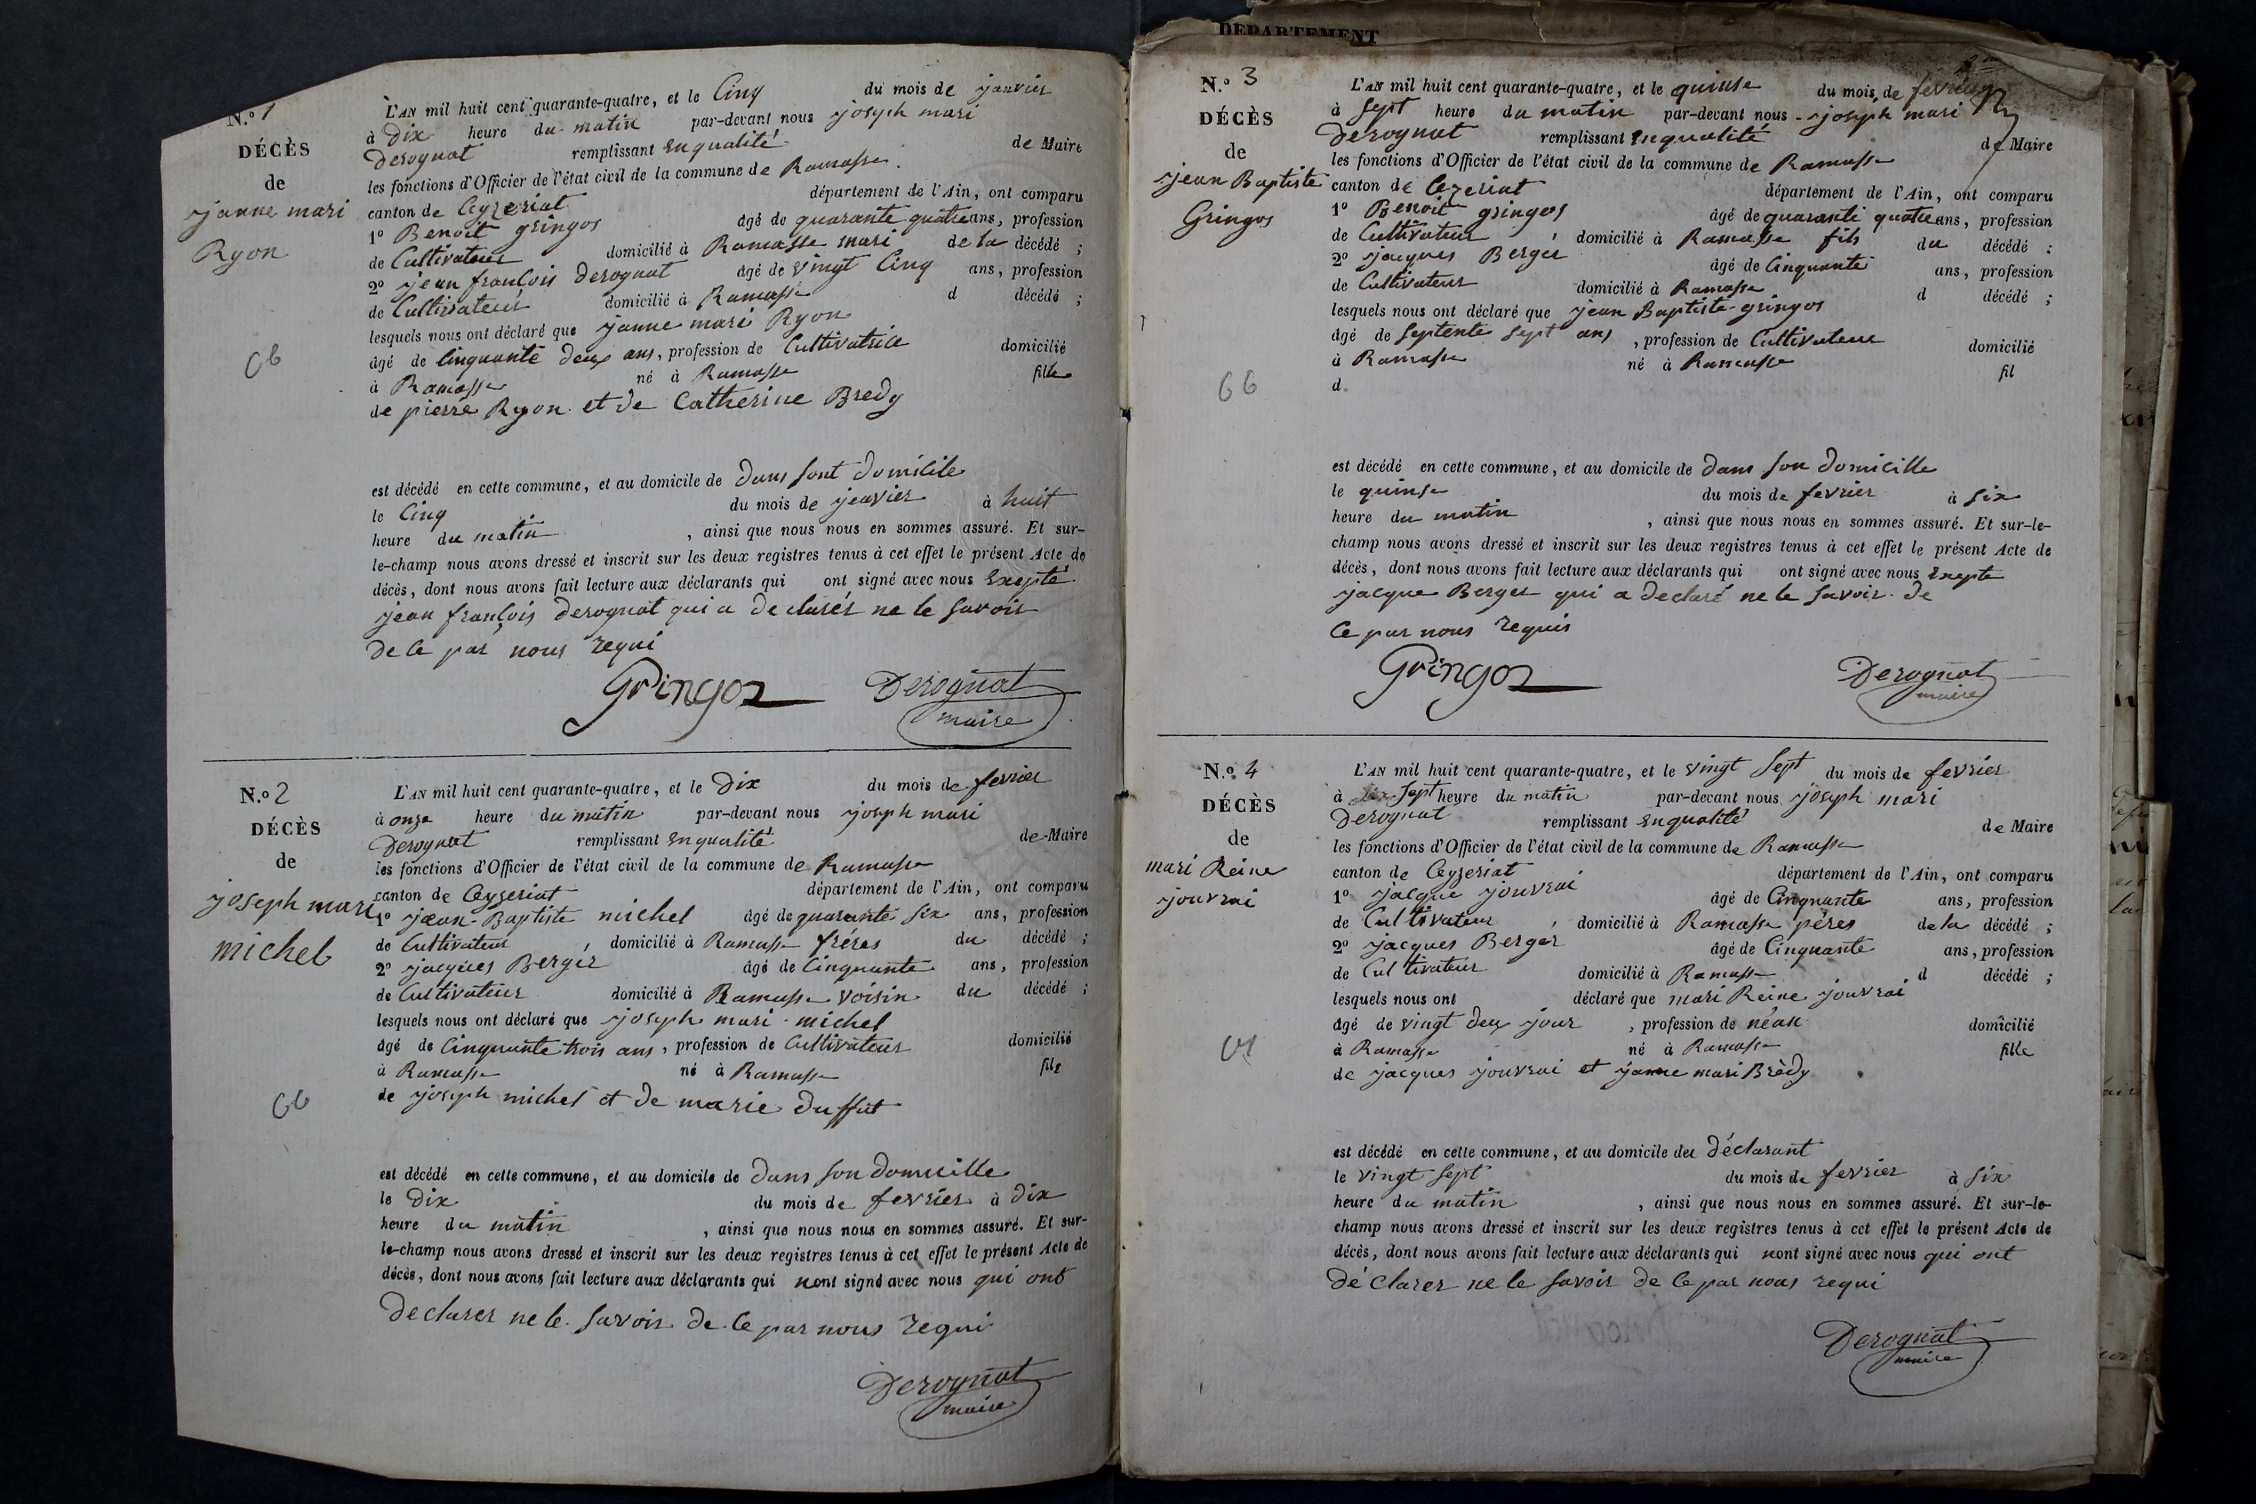 N.º 1
DÉCÈS
de
janne mari
Ryon
L'AN mil huit cent quarante-quatre, et le Cinq du mois de janvier
à Dix heure du matin par-devant nous joseph mari
Derognat remplissant En qualité de Maire
les fonctions d'Officier de l'état civil de la commune de Ramasse
canton de Ceyzeriat département de l'Ain, ont comparu
1º Benoit gringos âgé de quarante quatre ans, profession
de Cultivateur domicilié à Ramasse mari de la décédé ;
2º jean françois derognat âgé de vingt Cinq ans, profession
de Cultivateur domicilié à Ramasse d décédé ;
lesquels nous ont déclaré que janne mari Ryon
âgé de Cinquante deux ans, profession de Cultivatrice domicilié
à Ramasse né à Ramasse fille
de pierre Ryon et de Catherine Bredy
est décédé en cette commune, et au domicile de Dans sont domicile
le Cinq du mois de jenvier à huit
heure du matin , ainsi que nous nous en sommes assuré. Et sur-
le-champ nous avons dressé et inscrit sur les deux registres tenus à cet effet le présent Acte de
décès, dont nous avons fait lecture aux déclarants qui ont signé avec nous Exepté
jean françois derognat qui a declarér ne le savoir
de ce par nous requi
Gringoz Derognat
maire
N.º 2
DÉCÈS
de
joseph mari
michel
L'AN mil huit cent quarante-quatre, et le Dix du mois de fevrier
à onze heure du matin par-devant nous joseph mari
Derognat remplissant En qualité de Maire
les fonctions d'Officier de l'état civil de la commune de Ramasse
canton de Ceyzeriat département de l'Ain, ont comparu
1º jean Baptiste michel âgé de quarante six ans, profession
de Cultivateur , domicilié à Ramasse fréres du décédé ;
2º jacques Berger âgé de Cinquante ans, profession
de Cultivateur domicilié à Ramasse voisin du décédé ;
lesquels nous ont déclaré que joseph mari michel
âgé de Cinquante trois ans, profession de Cultivateur domicilié
à Ramasse né à Ramasse fils
de joseph michel et de marie Duffut
est décédé en cette commune, et au domicile de Dans son domicille
le Dix du mois de fevrier à dix
heure du matin , ainsi que nous nous en sommes assuré. Et sur-
le-champ nous avons dressé et inscrit sur les deux registres tenus à cet effet le présent Acte de
décès, dont nous avons fait lecture aux déclarants qui nont signé avec nous qui ont
declarer ne le savoir de ce par nous requi
Derognat
maire
DEPARTEMENT
N.º 3
DÉCÈS
de
jean Baptiste
Gringos
66
L'AN mil huit cent quarante-quatre, et le quinse du mois de fevrier
à sept heure du matin par-devant nous joseph mari
Derognat remplissant En qualité de Maire
les fonctions d'Officier de l'état civil de la commune de Ramasse
canton de Cezeriat département de l'Ain, ont comparu
1º Benoit gringos âgé de quarante quatre ans, profession
de Cultivateur , domicilié à Ramasse fils du décédé ;
2º jacques Berger âgé de Cinquante ans, profession
de Cultivateur domicilié à Ramasse d décédé ;
lesquels nous ont déclaré que jean Baptiste gringos
âgé de septente sept ans , profession de Cultivateur domicilié
à Ramasse né à Ramasse fil
d
est décédé en cette commune, et au domicile de dans son domicille
le quinse du mois de fevrier à six
heure du matin , ainsi que nous nous en sommes assuré. Et sur-le-
champ nous avons dressé et inscrit sur les deux registres tenus à cet effet le présent Acte de
décès, dont nous avons fait lecture aux déclarants qui ont signé avec nous Exepte
jacque Berger qui a declaré ne le savoir de
ce par nous requis
Gringoz Derognat
maire
N.º 4
DÉCÈS
de
mari Reine
jouvrai
L'AN mil huit cent quarante-quatre, et le vingt sept du mois de fevrier
à sept heure du matin par-devant nous joseph mari
Derognat remplissant En qualité de Maire
les fonctions d'Officier de l'état civil de la commune de Ramasse
canton de Ceyzeriat département de l'Ain, ont comparu
1º jacque jouvrai âgé de Cinquante ans, profession
de Cultivateur , domicilié à Ramasse péres de la décédé ;
2º jacques Berger âgé de Cinquante ans, profession
de Cultivateur domicilié à Ramasse d décédé ;
lesquels nous ont déclaré que mari Reine jouvrai
âgé de vingt deux jour , profession de néan domicilié
à Ramasse né à Ramasse fille
de jacques jouvrai et janne mari Brèdy
est décédé en cette commune, et au domicile du déclarant
le vingt sept du mois de fevrier à six
heure du matin , ainsi que nous nous en sommes assuré. Et sur-le-
champ nous avons dressé et inscrit sur les deux registres tenus à cet effet le présent Acte de
décès, dont nous avons fait lecture aux déclarants qui nont signé avec nous qui ont
déclarer ne le savoir de ce par nous requi
Derognat
maire